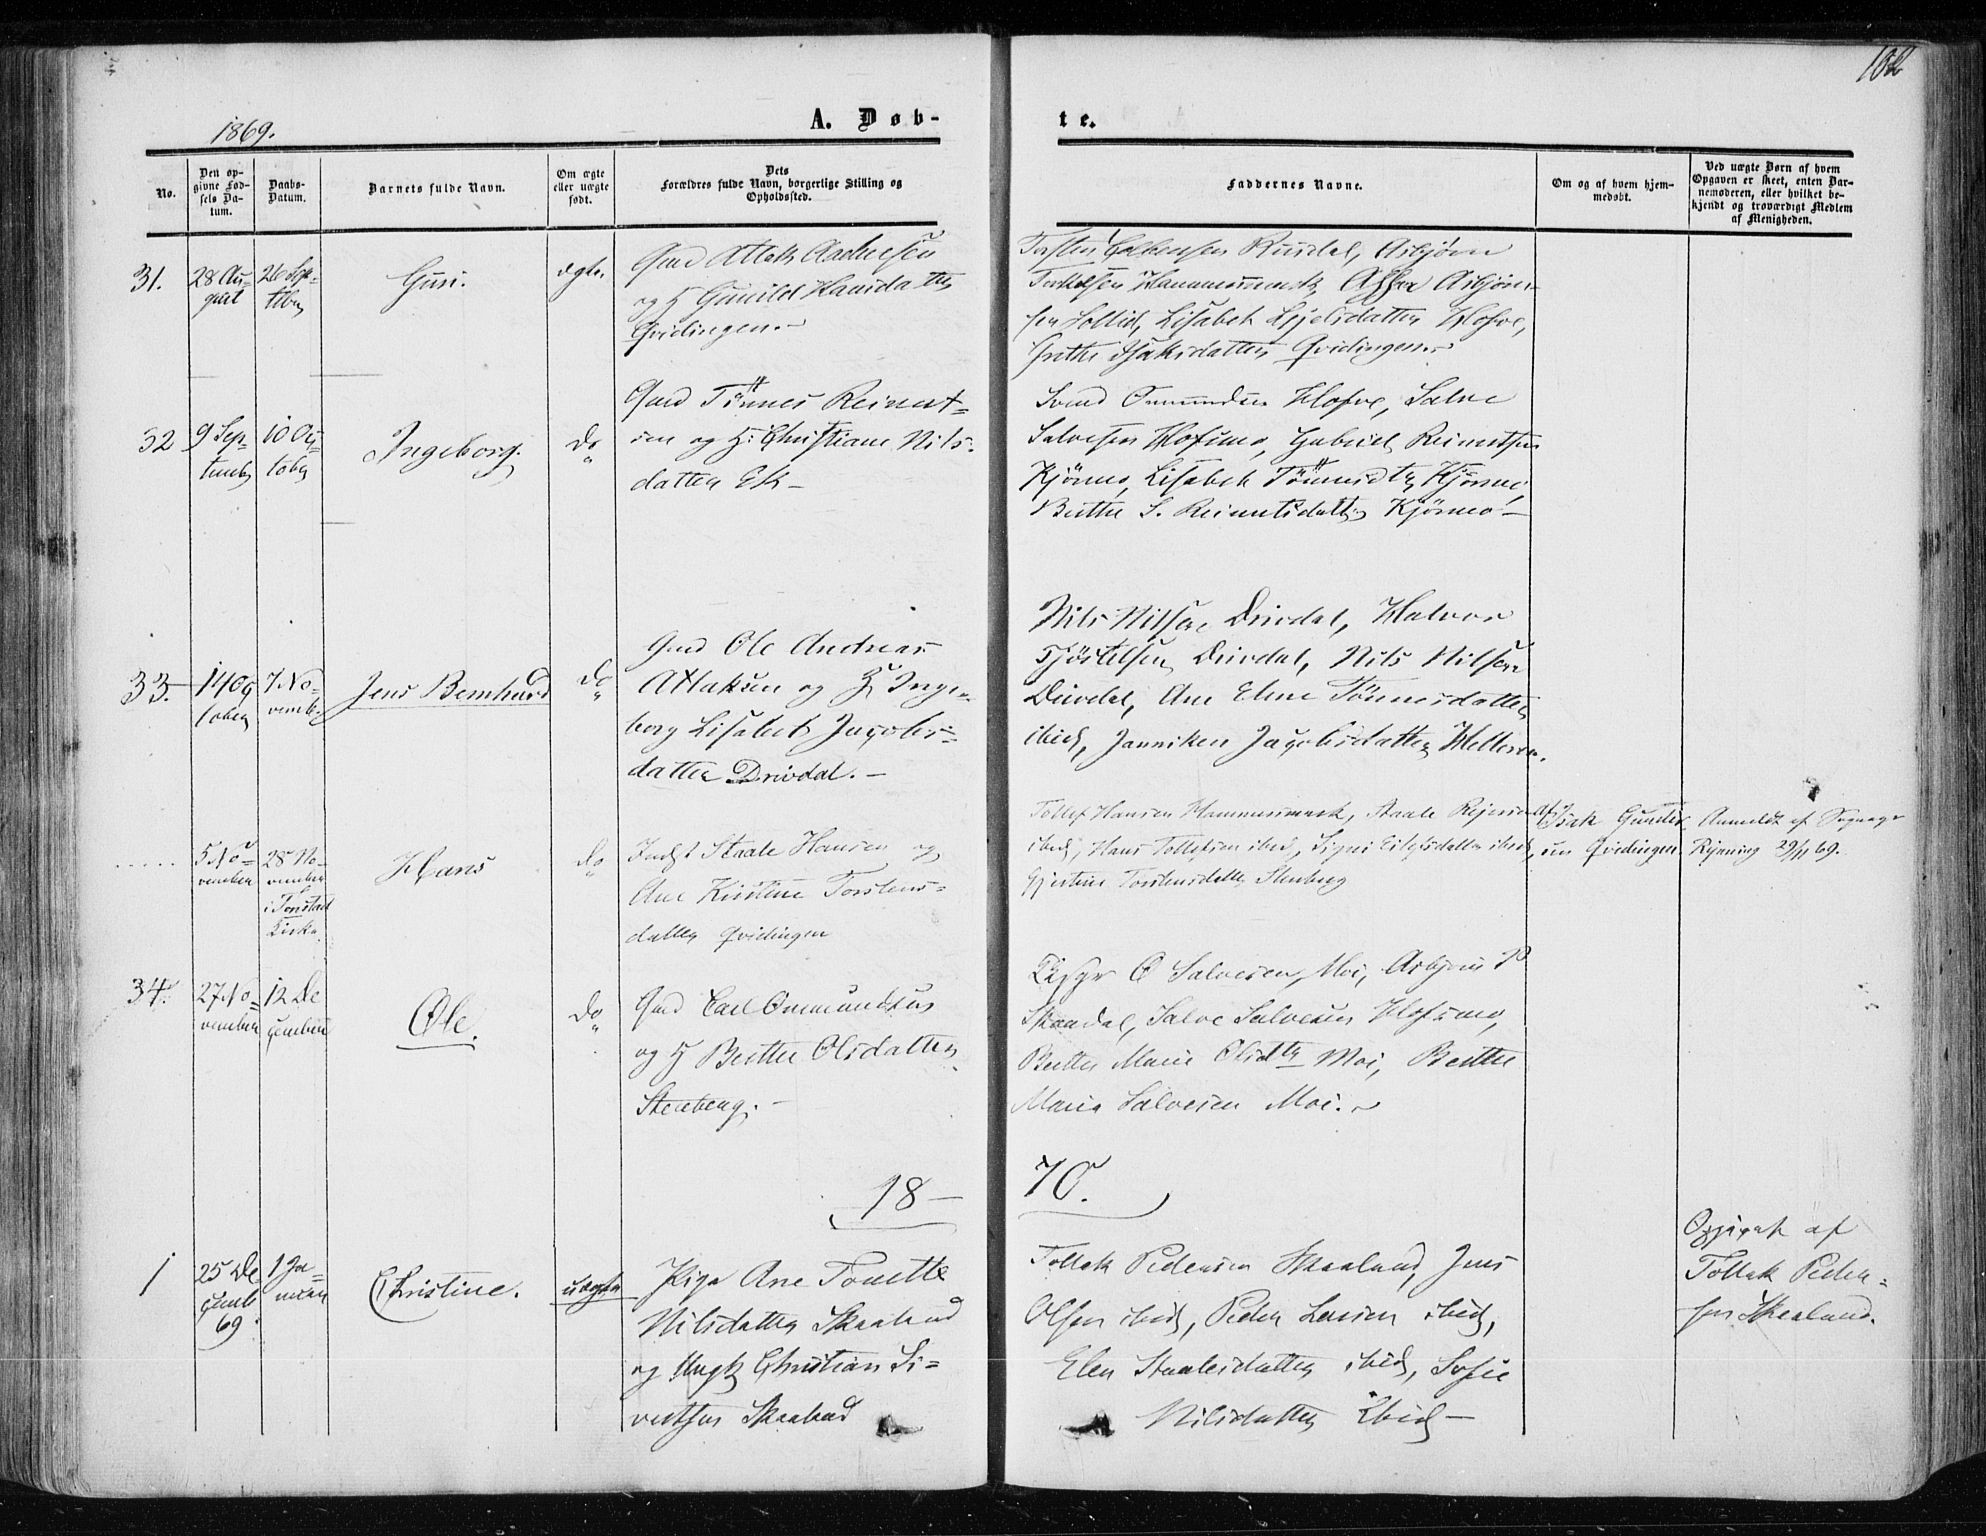 102
1869.
A. Døb-
te.
No.
Den op-
givne Fød-
sels Da-
tum.
Daabs-
Datum.
Barnets fulde Navn.
Om ægte
eller uægte
født.
Dets
Forældres fulde Navn, borgerlige Stilling og
Opholdssted.
Faddernes Navne.
Om og af hvem hjem-
medøbt.
Ved uægte Børn af hvem
Opgaven er skeet, enten Bar-
nemoderen, eller hvilket be-
kjendt og troværdigt Medlem
af Menigheden.
31.
28 Au-
gust
26 Sep-
tbr
Guri.
ægte
Gmd Atlak
og H Gunild Hansdatter
Qvidingen.
Torsten Rusdal, Asbjørn
Torkelsen Hammersmark, Asbjørn-
sen Sollid, Lisabet Kjelsdatter Hofve,
Grethe Isaksdatter Qvidingen.
32
9 Sep-
temb
10 Oc-
tober
Ingeborg.
Do
Gmd Tönnes Reinert-
sen og H: Christiane Nils-
datter Ek-
Svend Ommundsen Hofve, Salve
Salvesen Hofsmo, Gabriel Reinertsen
Kjörmo, Lisabet Tönnesdtr Kjörmo,
Berthe S. Reinertsdatter Kjörmo-
33.
14 Oc
tober
7 No-
vemb.
Jens Bernhard
Do
Gmd Ole Andreas
Atlaksen og H Inge-
borg Lisabet Jacobs-
datter Drivdal. -
Nils Nilsen Drivdal, Halvor
Tjöstelsen Drivdal, Nils Nilsen
Drivdal, Ane Elene Tönnesdatter
ibid, Janniken Jacobsdatter Helleren.
5 No-
vember
28 No-
vember
i Tonstad
Kirke
Hans
Do
Indst Staale Hansen og
Ane Kirstine Torstens-
datter Qvidingen
Tollef Hansen Hammersmark, Staale Rejersen
ibid, Hans Tollefsen ibid, Signi Eilefsdatter ibid,
Gjertine Torstensdatter Stenberg
af Isak Gunder
sen Qvidingen
Anmeldt af Sognepr
Rynning 29/11 69.
34.
27 No-
vember
12 De
cember
Ole.
Do
Gmd Carl Ommundsen
og H Berthe Olsdatter
Stenberg. -
O Salvesen Moi, Asbjørn P
Skaadal, Salve Salvesen Hofsmo,
Berthe Marie Olsdtr Moi, Berthe
Maria Salvesen Moi.
18-
70.
1
25 De
cemb
69.
1 Ja-
nuar
Christine.
uægte
Pige Ane Tonette
Nilsdatter Skaaland
og Ungk Christian Si-
vertsen Skaaland
Tollak Pedersen Skaaland, Jens
Olsen ibid, Peder Larsen ibid,
Elen Staalesdatter ibid, Sofie
Nilsdatter Ibid-
Opgivet af
Tollak Peder-
sen Skaaland.